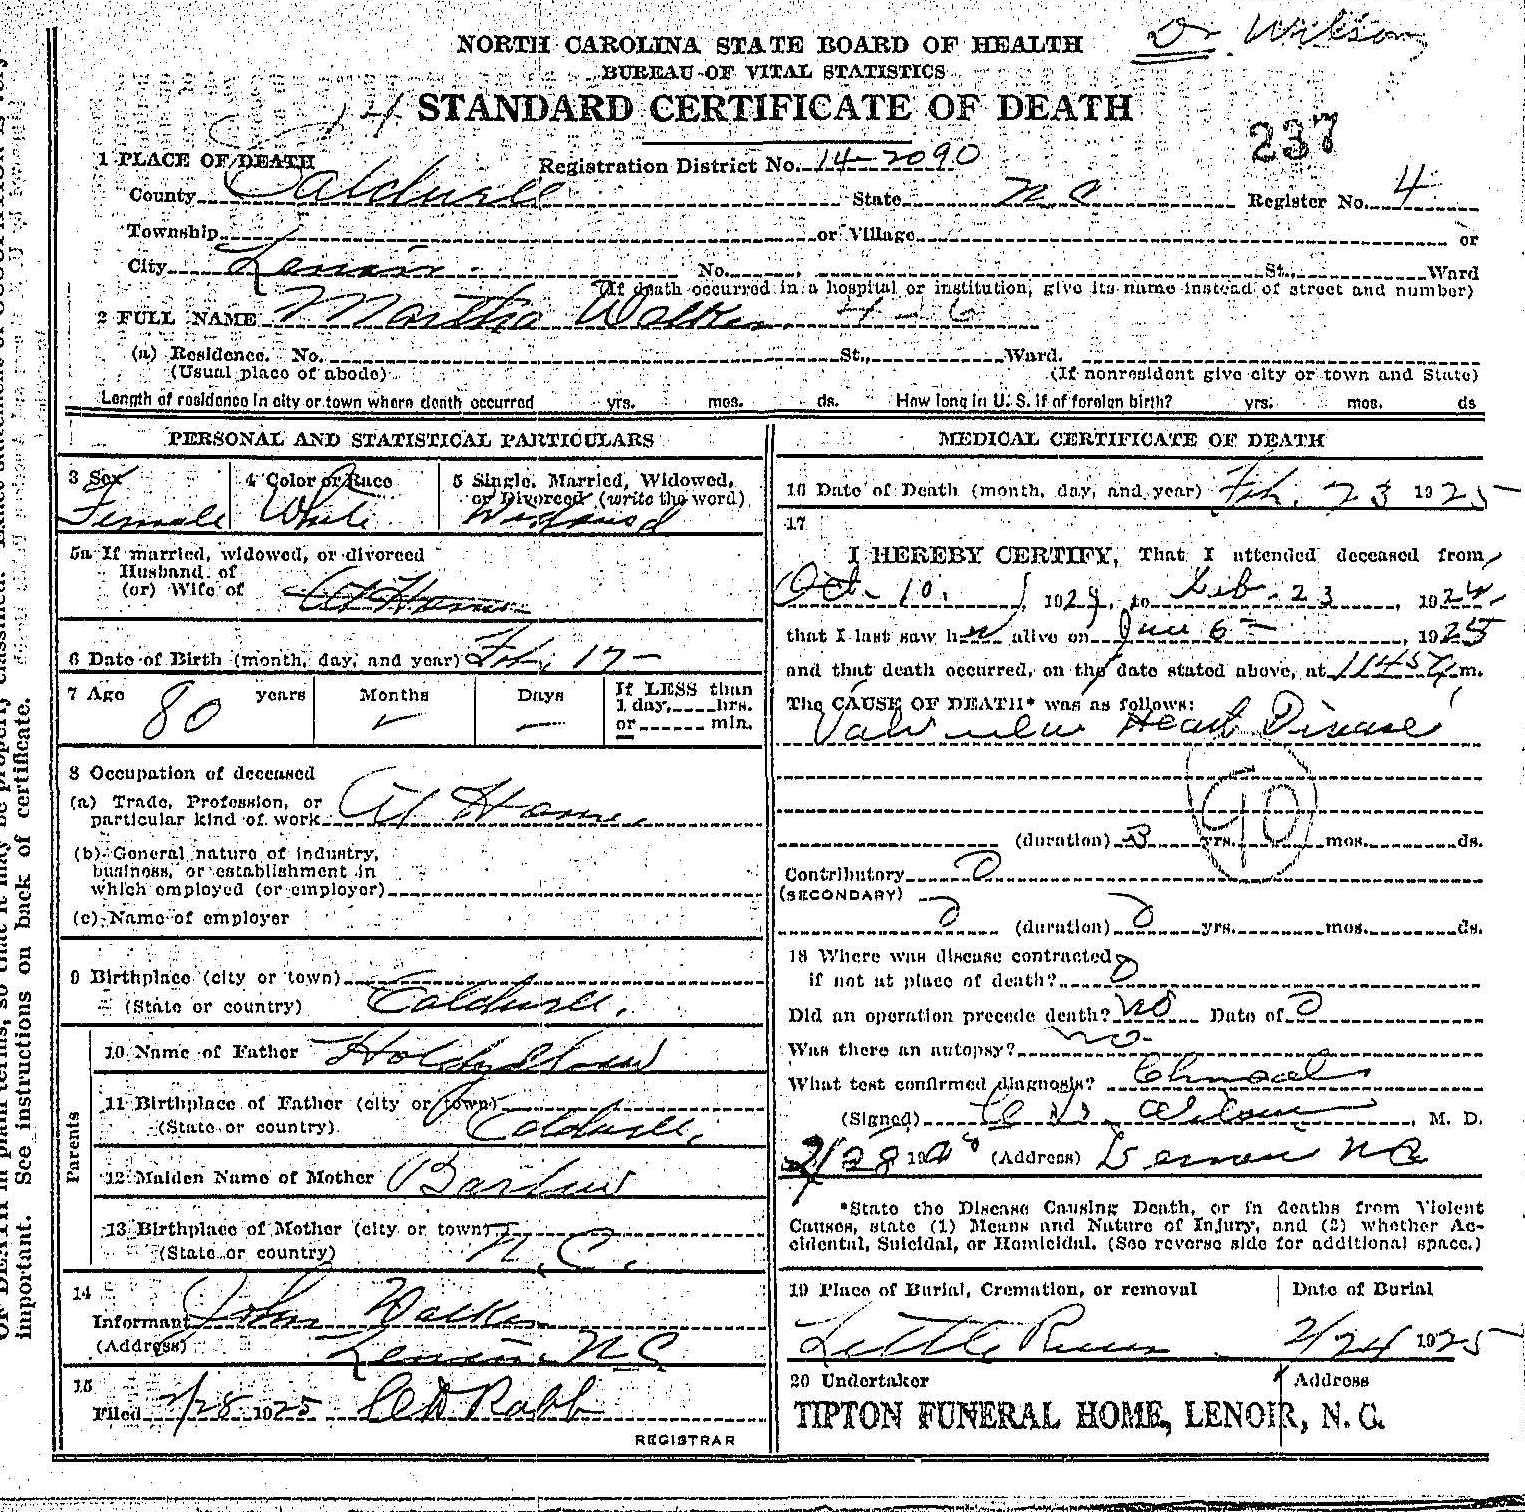 Dr. Wilson
NORTH CAROLINA STATE BOARD OF HEALTH
BUREAU OF VITAL STATISTICS
14 STANDARD CERTIFICATE OF DEATH
237
1 PLACE OF DEATH Registration District No. 14-2090
County Caldwell State N C Register No. 4
Township or Village or
City Lenoir. No. St., Ward
(If death occurred in a hospital or institution, give its name instead of street and number)
2 FULL NAME Martha Walker 4-6
(a) Residence. No. St., Ward.
(Usual place of abode) (If nonresident give city or town and State)
Length of residence in city or town where death occurred yrs. mos. ds. How long in U. S. if of foreign birth? yrs. mos. ds
PERSONAL AND STATISTICAL PARTICULARS
3 Sex 4 Color or Race 5 Single, Married, Widowed,
or Divorced (write the word)
Female White Widowed
5a If married, widowed, or divorced
Husband of
(or) Wife of At Home
6 Date of Birth (month, day, and year) Feb. 17-
7 Age 80 years Months Days If LESS than
1 day, hrs.
or min.
8 Occupation of deceased
(a) Trade, Profession, or
particular kind of work At Home.
(b) General nature of industry,
business, or establishment in
which employed (or employer)
(c) Name of employer
9 Birthplace (city or town)
(State or country) Caldwell.
Parents
10 Name of Father
11 Birthplace of Father (city or town)
(State or country) Caldwell.
12 Maiden Name of Mother Barlow
13 Birthplace of Mother (city or town)
(State or country) N. C.
14
Informant John Walker
(Address) Lenoir N C
15
Filed 2/28 1925 Rabb
REGISTRAR
MEDICAL CERTIFICATE OF DEATH
16 Date of Death (month, day, and year) Feb. 23 1925
17
I HEREBY CERTIFY, That I attended deceased from
Oct. 10. 192 , to Feb. 23, 192
that I last saw her alive on 6 , 1925
and that death occurred, on the date stated above, at 1145 m.
The CAUSE OF DEATH* was as follows:
Valvular Heart Disease
90
(duration) 3 yrs. mos. ds.
Contributory 0
(SECONDARY)
0 (duration) 0 yrs. mos. ds.
18 Where was disease contracted
if not at place of death? 0
Did an operation precede death? No Date of 0
Was there an autopsy? no.
What test confirmed diagnosis? Clinical
(Signed) Wilson, M. D.
2/28 19 (Address) Lenoir N C
*State the Disease Causing Death, or in deaths from Violent
Causes, state (1) Means and Nature of Injury, and (2) whether Ac-
cidental, Suicidal, or Homicidal. (See reverse side for additional space.)
19 Place of Burial, Cremation, or removal Date of Burial
Little River 2/24 1925
20 Undertaker Address
TIPTON FUNERAL HOME, LENOIR, N. C.
important. See instructions on back of certificate.